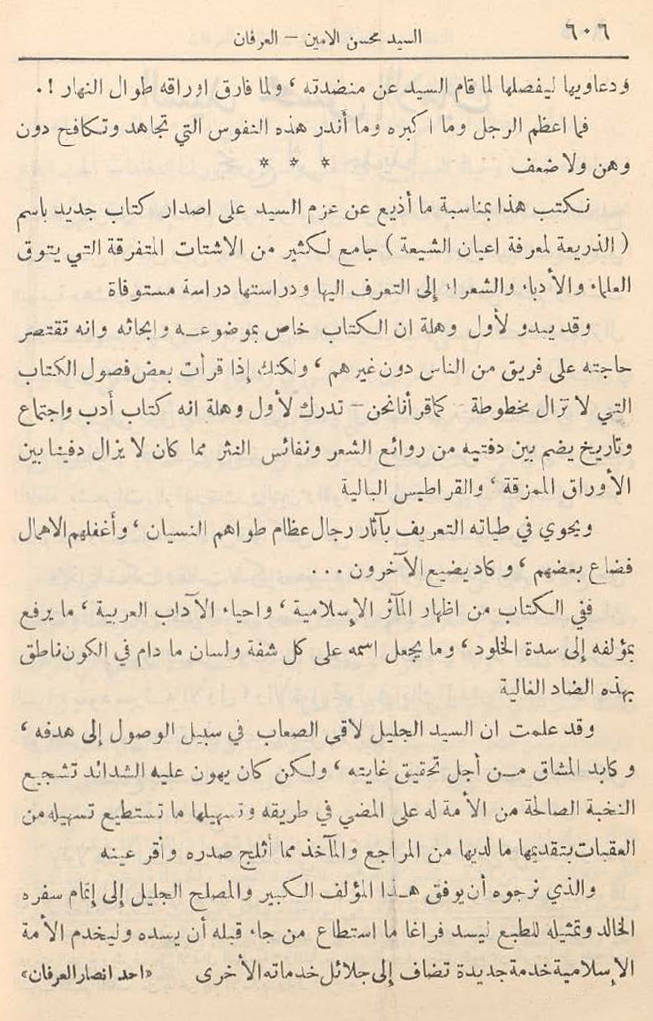 ٦٠٦
السيد محسن الامين – العرفان
ودعاويها ليفصلها لما قام السيد عن منضدته ، ولما فارق اوراقه طوال النهار ! .
فما اعظم الرجل وما اكبره وما أندر هذه النفوس التي تجاهد وتكافح دون
وهن ولا ضعف
* * *
نكتب هذا بمناسبة ما أذيع عن عزم السيد على اصدار كتاب جديد باسم
( الذريعة لمعرفة اعيان الشيعة ) جامع لكثير من الاشتات المتفرقة التي يتوق
العلماء والأدباء والشعراء إلى التعرف اليها ودراستها دراسة مستوفاة
وقد يبدو لأول وهلة ان الكتاب خاص بموضوعه وابحاثه وانه تقتصر
حاجته على فريق من الناس دون غيرهم ، ولكنك إذا قرأت بعض فصول الكتاب
التي لا تزال مخطوطة – كما قرأنا نحن – تدرك لأول وهلة انه كتاب أدب واجتماع
وتاريخ يضم بين دفتيه من روائع الشعر ونفائس النثر مما كان لا يزال دفينا بين
الأوراق الممزقة ، والقراطيس البالية
ويحوي في طياته التعريف بآثار رجال عظام طواهم النسيان ، وأغفلهم الاهمال
فضاع بعضهم ، وكاد يضيع الآخرون ...
ففي الكتاب من اظهار المآثر الإسلامية ، واحياء الآداب العربية ، ما يرفع
بمؤلفه إلى سدة الخلود ، وما يجعل اسمه على كل شفة ولسان ما دام في الكون ناطق
بهذه الضاد الغالية
وقد علمت ان السيد الجليل لاقى الصعاب في سبيل الوصول إلى هدفه ،
وكابد المشاق من أجل تحقيق غايته ، ولكن كان يهون عليه الشدائد تشجيع
النخبة الصالحة من الأمة له على المضي في طريقه وتسهيلها ما تستطيع تسهيله من
العقبات بتقديمها ما لديها من المراجع والمآخذ مما أثلج صدره وأقر عينه
والذي نرجوه أن يوفق هذا المؤلف الكبير والمصلح الجليل إلى إتمام سفره
الخالد وتمثيله للطبع ليسد فراغا ما استطاع من جاء قبله أن يسده وليخدم الأمة
الإسلامية خدمة جديدة تضاف إلى جلائل خدماته الأخرى «احد انصار العرفان»